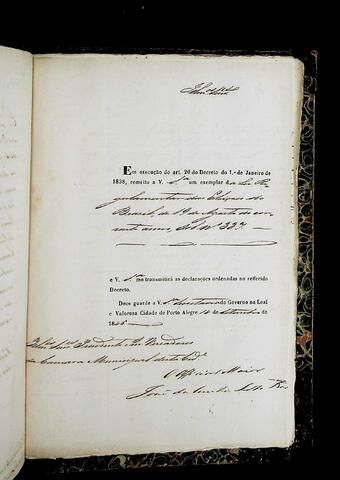 Em execução do art. 20 do Decreto do 1.º de Janeiro de
1838, remetto a V. S.ª um exemplar da Lei Re-
gulamentar das Eleições do
Brasil, de 19 de Agosto do cor-
rente anno, N.º 387.
e V. S.ª me transmittirá as declarações ordenadas no referido
Decreto.
Deos guarde a V. S.ª Secretaria do Governo na Leal
e Valorosa Cidade de Porto Alegre 14 de Setembro de
1846.
Senr. Presidente e Vereadores
da Camara Municipal desta Cid.e
O Official Maior
João da Cunha